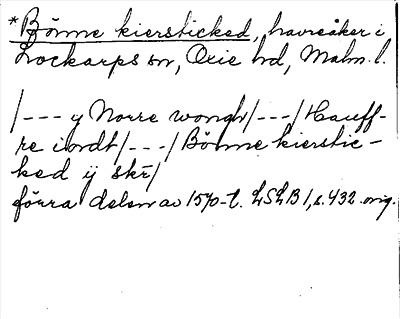 *Bönne kiersticked, havreåker i
Lockarps sn, Oxie hd, Malm. l.
/--- y Norre wongh/---/Hauff-
re iordt/---/Bönne kierstic-
ked ij skr/
förra delen av 1570-t. LSLB 1, s. 432 orig.